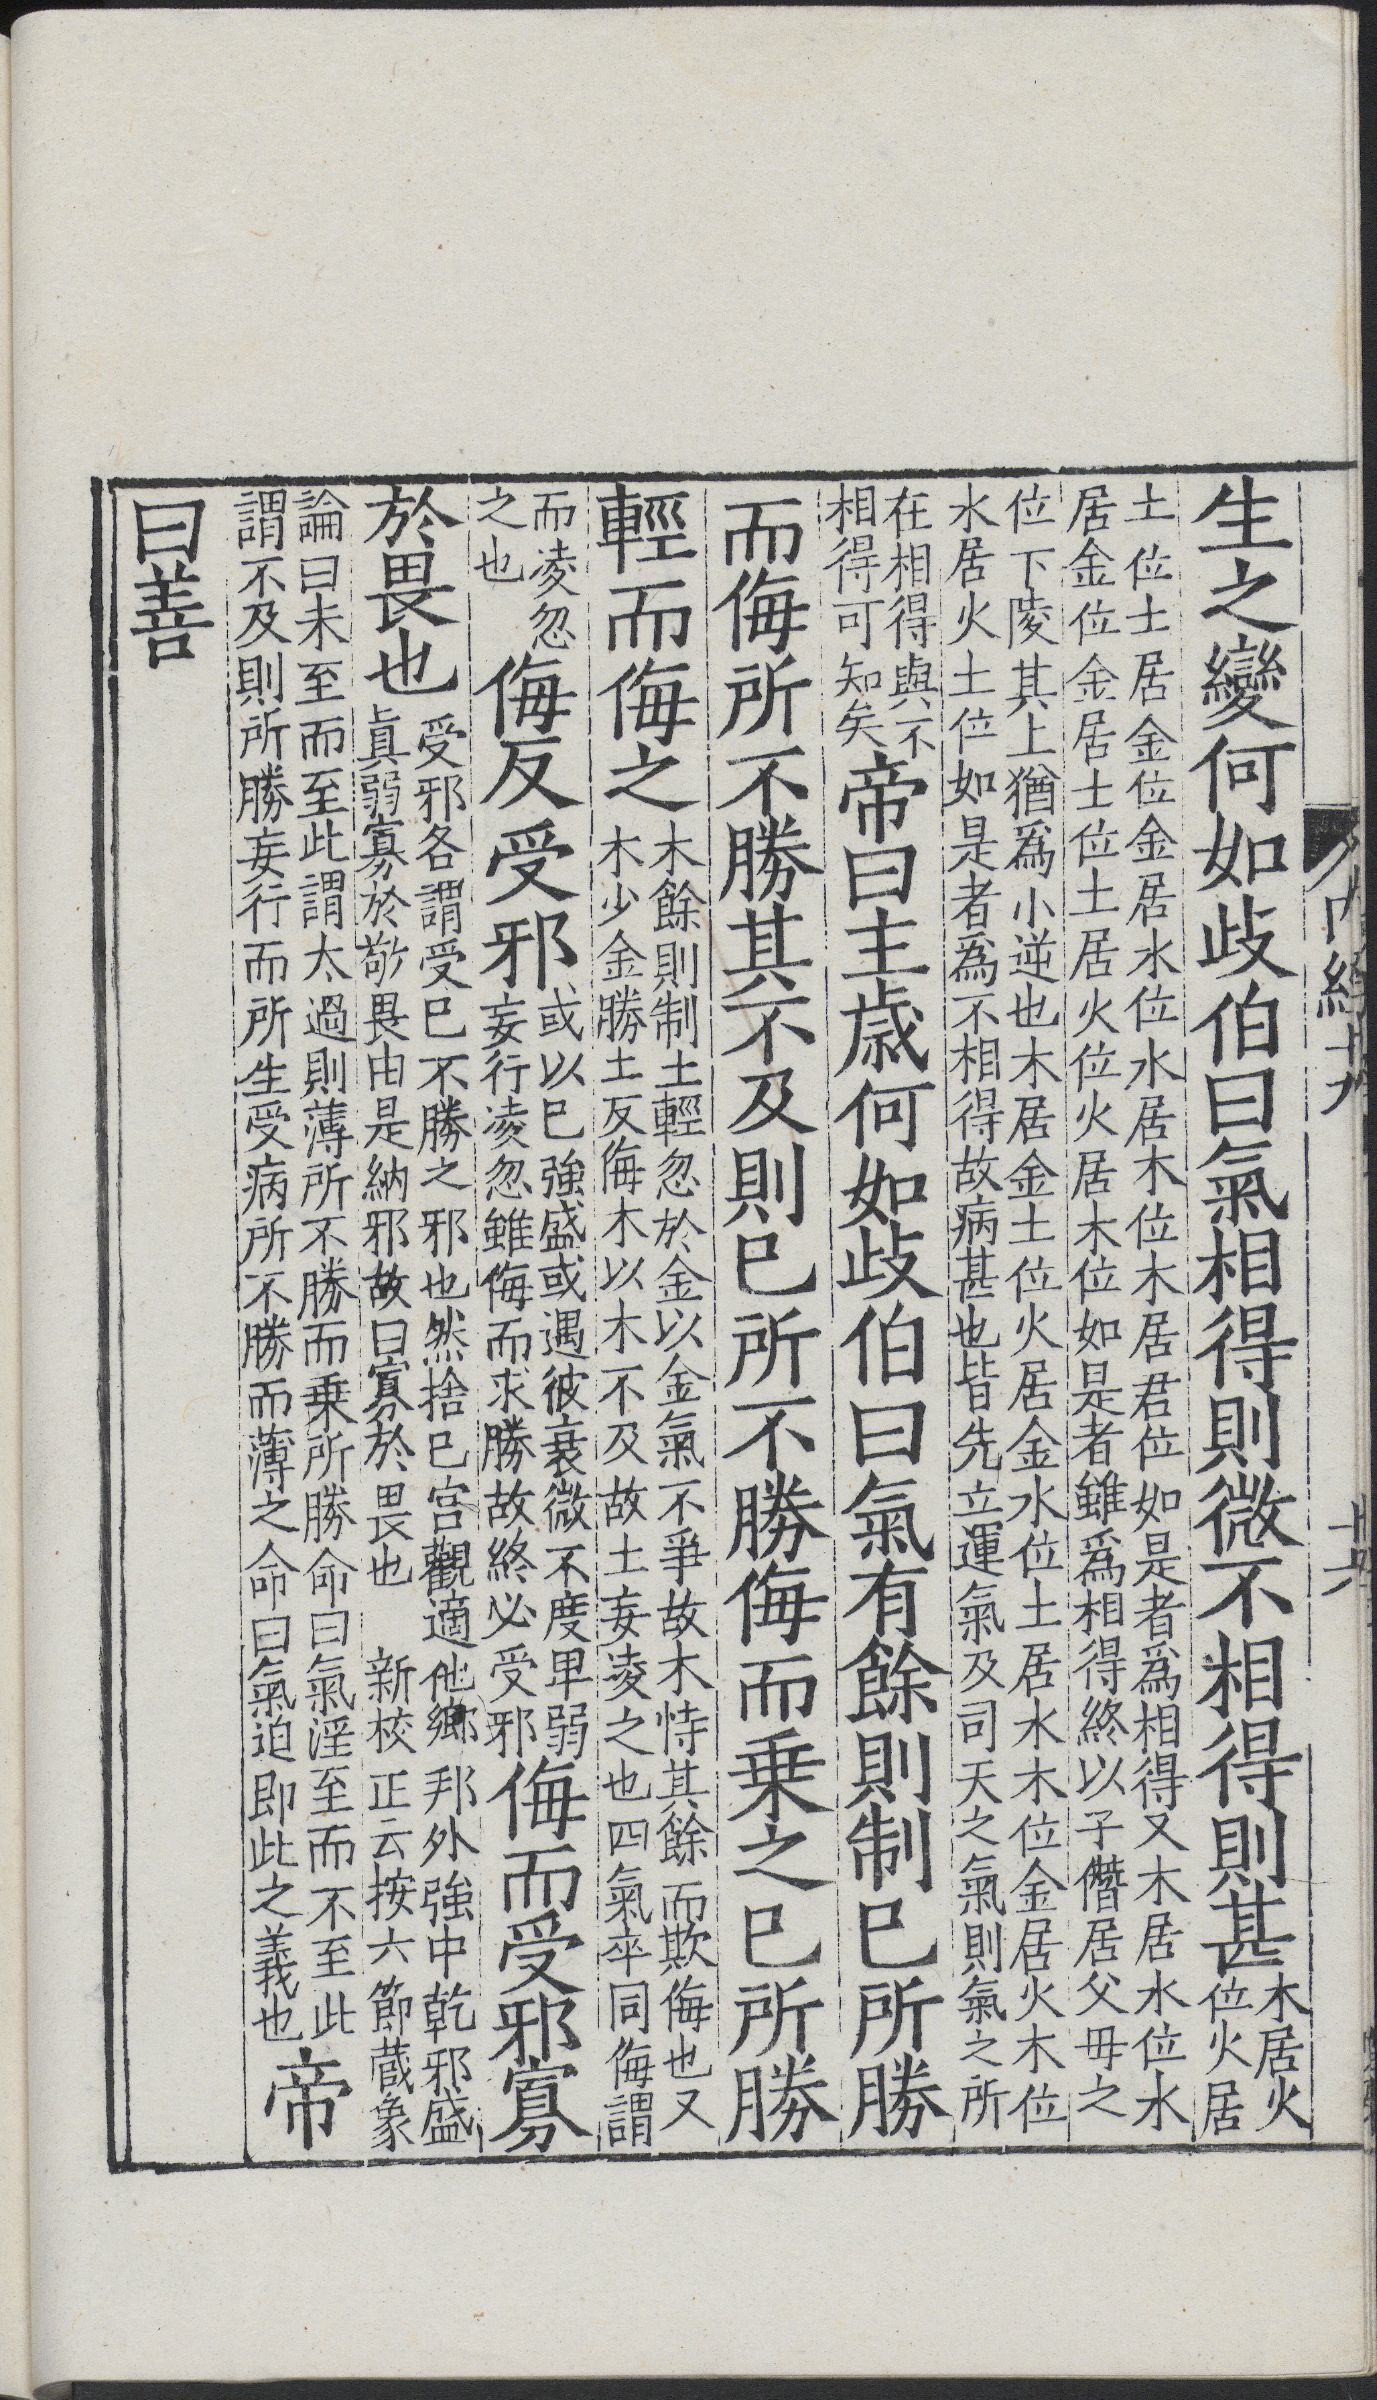 生之變何如歧伯曰氣相得則微不相得則甚木居火
位火居
土位士居金位金居水位水居木位木居君位如是者爲相得又木居水位水
居金位金居士位土居火位火居木位如是者雖爲相得終以子僭居父毋之
位下陵其上猶爲小逆也木居金土位火居金水位土居水木位金居火木位
水居火土位如是者爲不相得故病甚也皆先立運氣及司天之氣則氣之所
在相得與不
相得可知矣帝曰主歳何如歧伯曰氣有餘則制巳所勝
而侮所不勝其不及則巳所不勝侮而乗之巳所勝
輕而侮之木餘則制土輕忽於金以金氣不爭故木恃其餘而欺侮也又
木少金勝土反侮木以木不及故土妄凌之也四氣卒同侮謂
而凌忽
之也侮反受邪或以巳強盛或遇彼衰微不度卑弱
妄行凌忽雖侮而求勝故終必受邪侮而受邪寡
於畏也受邪各謂受巳不勝之邪也然捨巳宮觀適他鄉邦外強中乾邪盛
眞弱寡於敬畏由是納邪故曰寡於畏也 新校正云按六節蔵象
論曰未至而至此謂太過則薄所不勝而乗所勝命曰氣淫至而不至此
謂不及則所勝妄行而所生受病所不勝而薄之命曰氣迫即此之義也帝
曰善
內經十九
十六